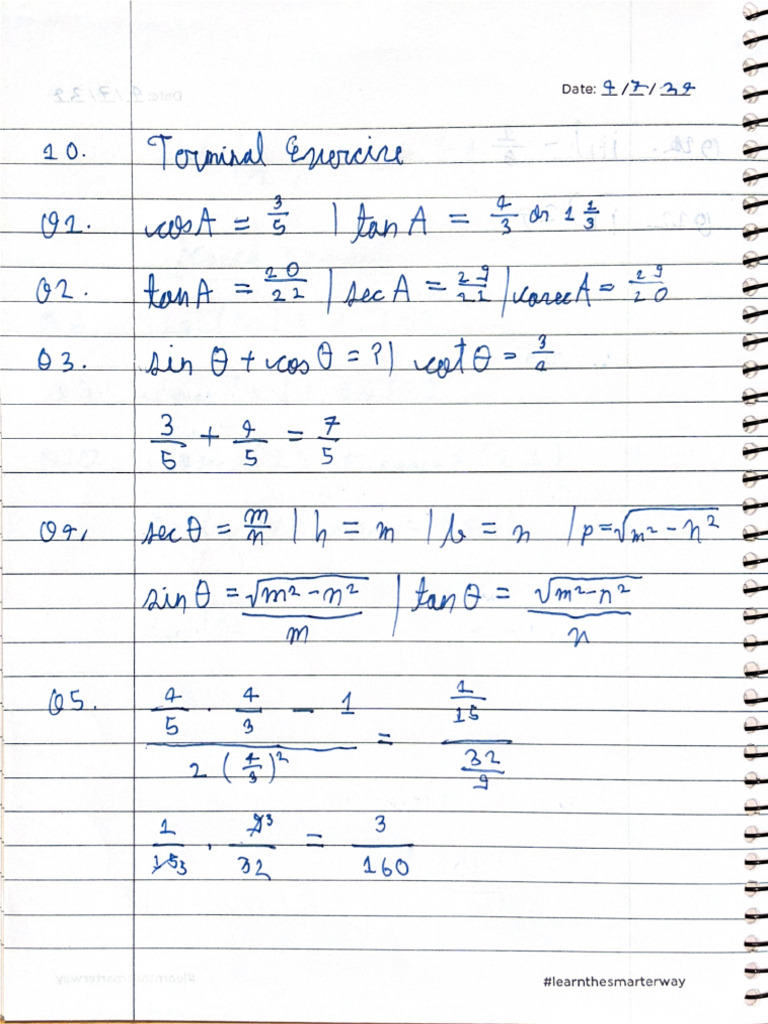 Date: 4/7/24
10. Terminal Exercise
Q1. cosA = 3/5 | tanA = 4/3 or 1 1/3
Q2. tanA = 20/21 | secA = 29/21 | cosecA = 29/20
Q3. sin θ + cos θ = ? | cot θ = 3/4
3/5 + 4/5 = 7/5
Q4, sec θ = m/n | h = m | b = n | p = √m² - n²
sin θ = √m² - n² / m | tan θ = √m² - n² / n
Q5. (4/5 · 4/3 - 1) / 2(4/3)² = (1/15) / (32/9)
1/15 3 · 9 3/32 = 3/160
#learnthesmarterway